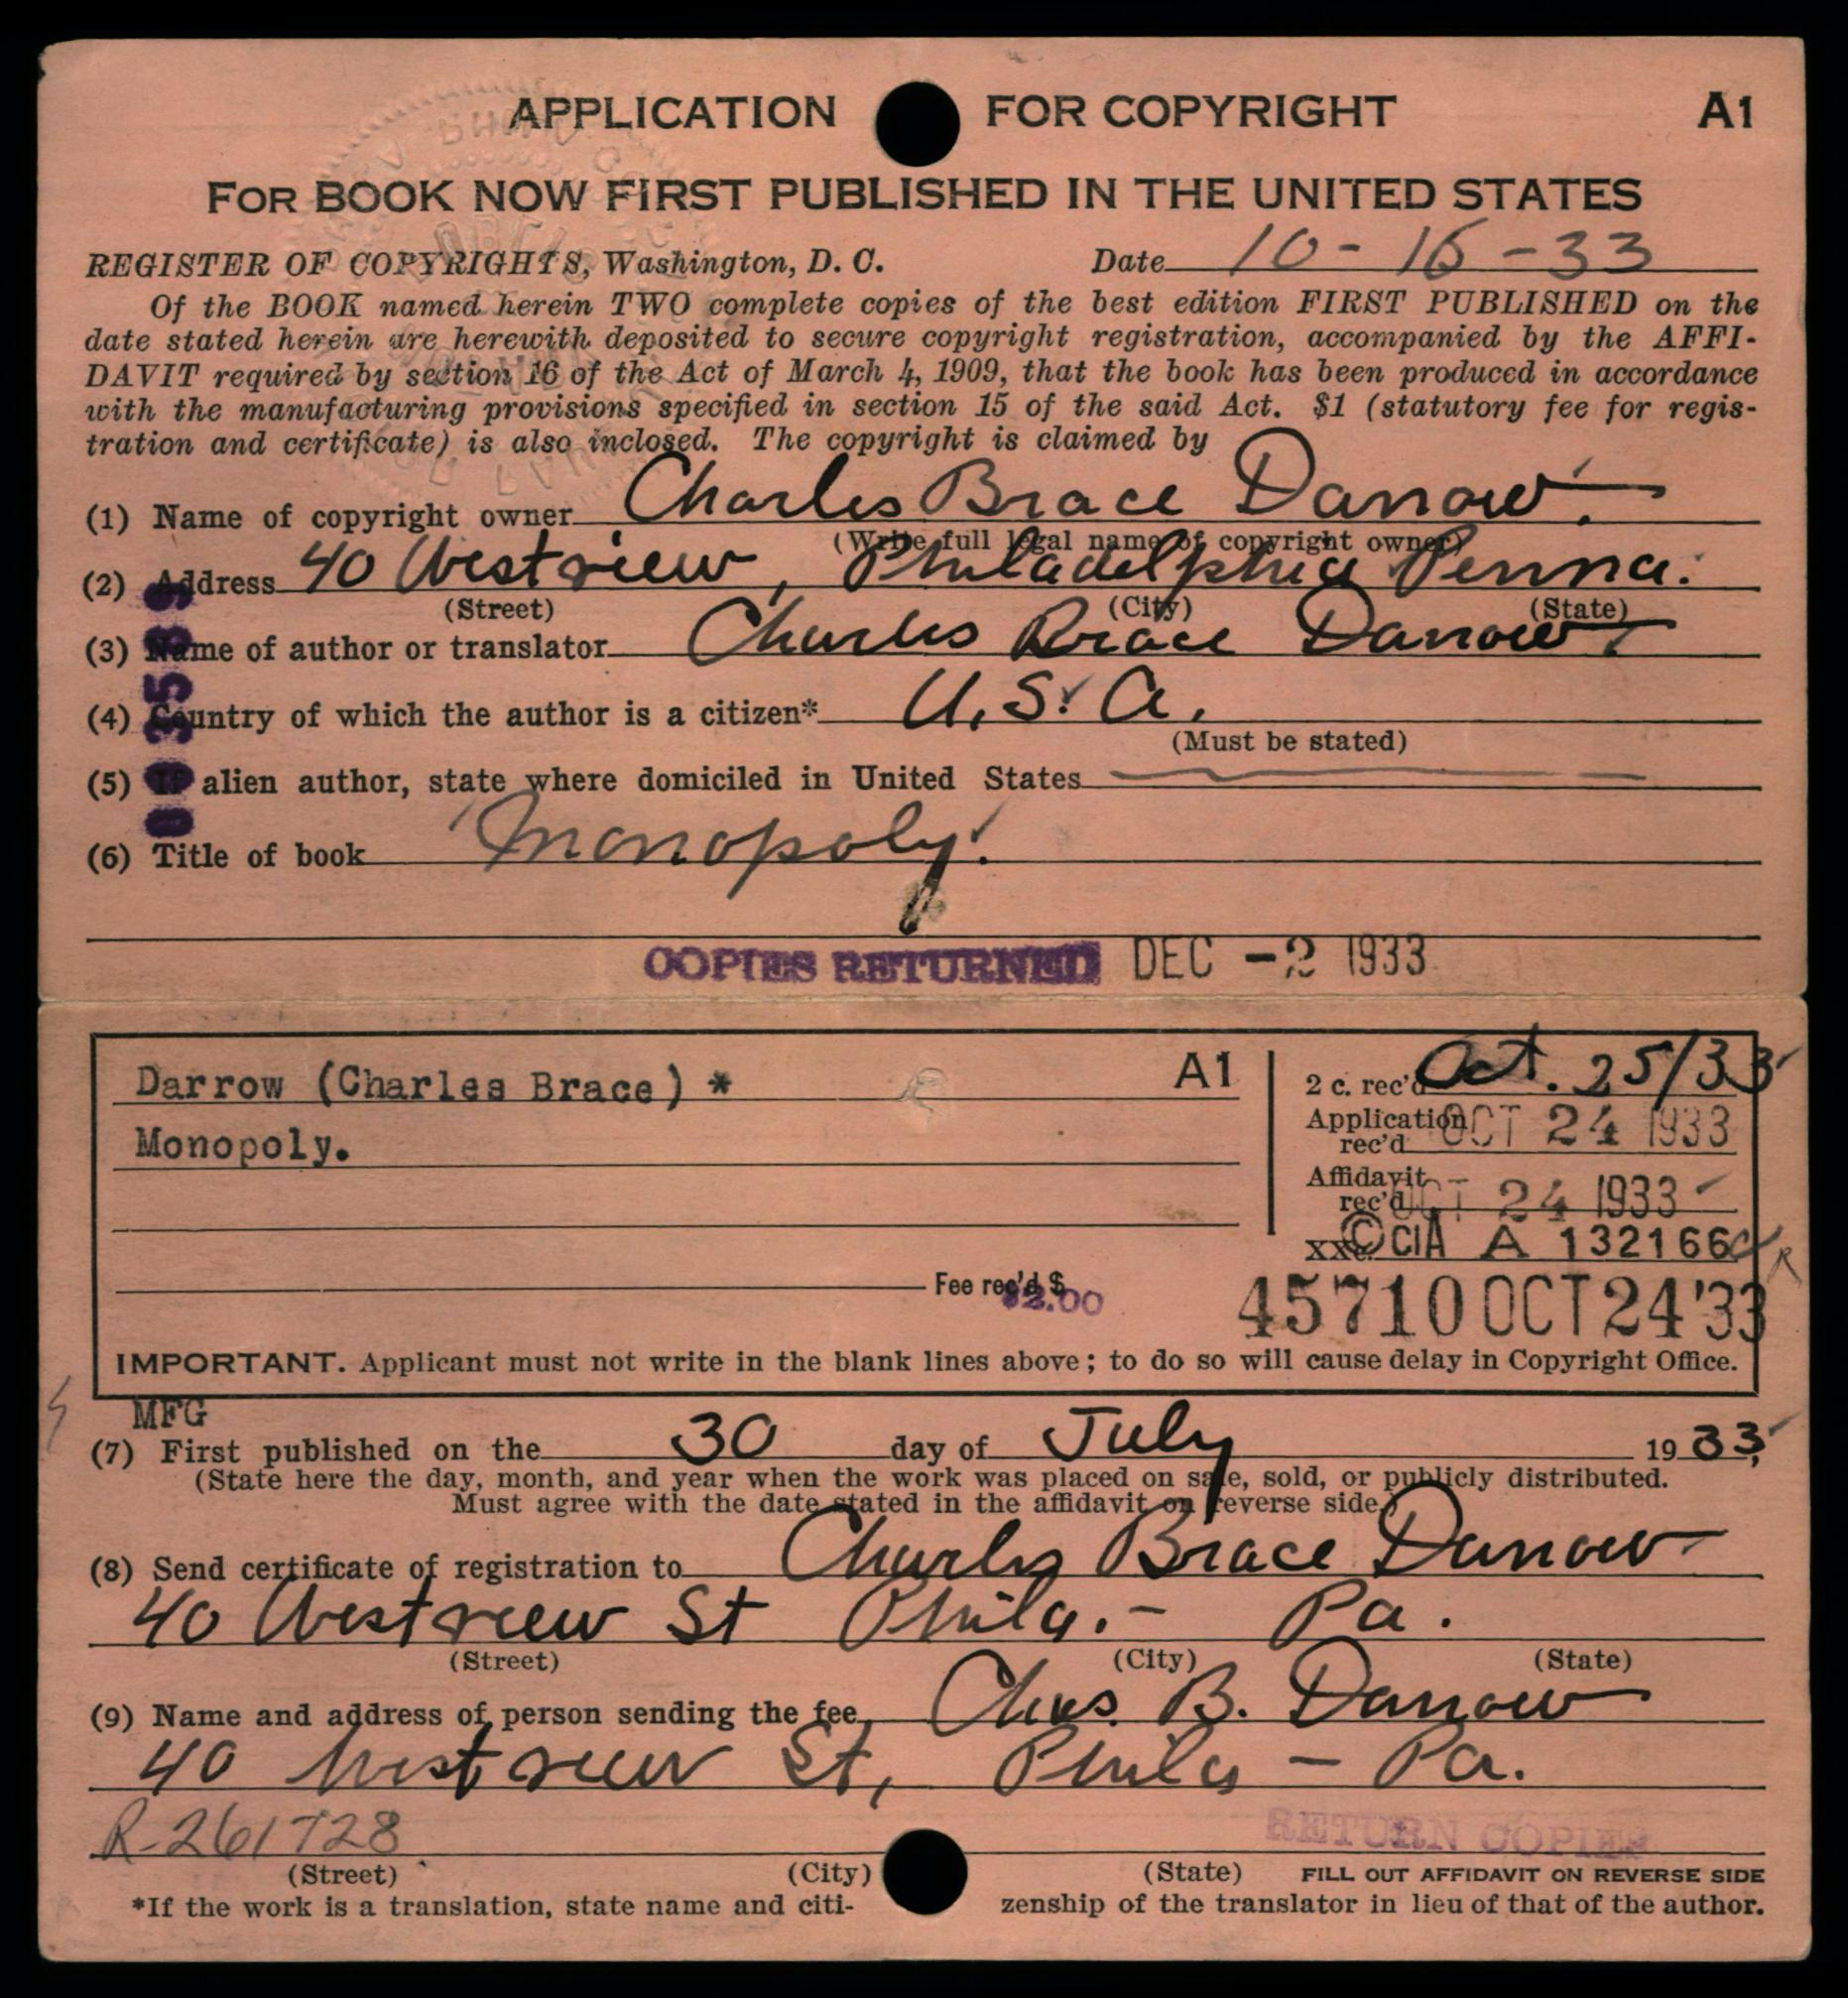 APPLICATION FOR COPYRIGHT A1
FOR BOOK NOW FIRST PUBLISHED IN THE UNITED STATES
REGISTER OF COPYRIGHTS, Washington, D. C. Date 10-16-33
Of the BOOK named herein TWO complete copies of the best edition FIRST PUBLISHED on the
date stated herein are herewith deposited to secure copyright registration, accompanied by the AFFI-
DAVIT required by section 16 of the Act of March 4, 1909, that the book has been produced in accordance
with the manufacturing provisions specified in section 15 of the said Act. $1 (statutory fee for regis-
tration and certificate) is also inclosed. The copyright is claimed by
(1) Name of copyright owner Charles Brace Darrow.
(Write full legal name of copyright owner)
(2) Address 40 Westview, Philadelphia Penna.
(Street) (City) (State)
(3) Name of author or translator Charles Brace Darrow.
(4) Country of which the author is a citizen* U.S.A.
(Must be stated)
(5) If alien author, state where domiciled in United States
(6) Title of book Monopoly.
COPIES RETURNED DEC -2 1933
Darrow (Charles Brace) * A1 2 c. rec'd Oct. 25/33
Monopoly. Application rec'd OCT 24 1933
Affidavit rec'd OCT 24 1933
© CIA A 132166
Fee rec'd $ $2.00 45710 OCT 24 '33
IMPORTANT. Applicant must not write in the blank lines above; to do so will cause delay in Copyright Office.
MFG
(7) First published on the 30 day of July 1933,
(State here the day, month, and year when the work was placed on sale, sold, or publicly distributed.
Must agree with the date stated in the affidavit on reverse side.)
(8) Send certificate of registration to Charles Brace Darrow
40 Westview St Phila.- Pa.
(Street) (City) (State)
(9) Name and address of person sending the fee, Chas. B. Darrow
40 Westview St, Phila - Pa.
R-261728 RETURN COPIES
(Street) (City) (State) FILL OUT AFFIDAVIT ON REVERSE SIDE
*If the work is a translation, state name and citi- zenship of the translator in lieu of that of the author.